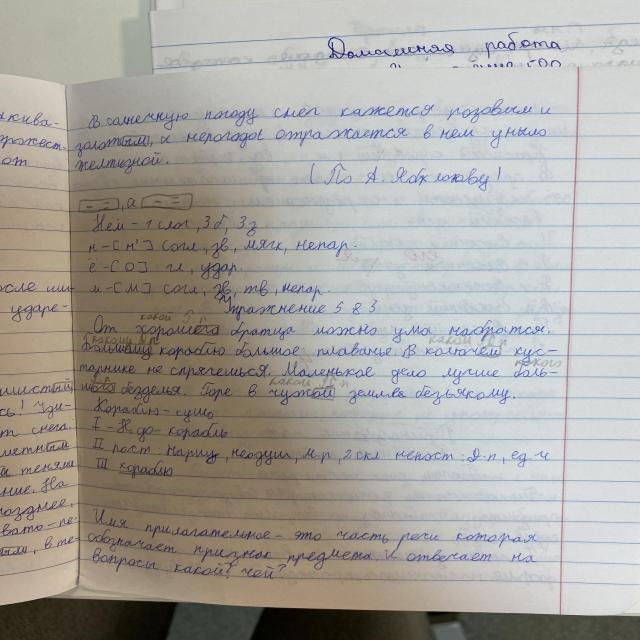 Домашняя работа
В солнечную погоду снег кажется розовым и
золотым, а непогода отражается в нём уныло
желтизной.
(По А. Яблокову)
, а
Нём - 1 слог, 3 б, 3 з
н - [н'] согл, зв, мягк, непар.
ё - [о] гл, удар.
м - [м] согл, зв, тв, непар.
Упражнение 583
какой Р.п
От хорошего братца можно ума набратся.
какому Д.п какой П.п
Большому кораблю большое плаванье. В колючем кус-
какого
тарнике не спрячешься. Маленькое дело лучше боль-
Р.п какой П.п
шого безделья. Горе в чужой земле безъякому.
Кораблю - сущ
I - Н до - корабль
II пост. нариц, неодуш, м.р, 2 скл непост: Д.п, ед.ч
III кораблю
Имя прилагательное - это часть речи которая
обозначает признак предмета и отвечает на
вопросы какой? чей?
от
после
ударе-
снега